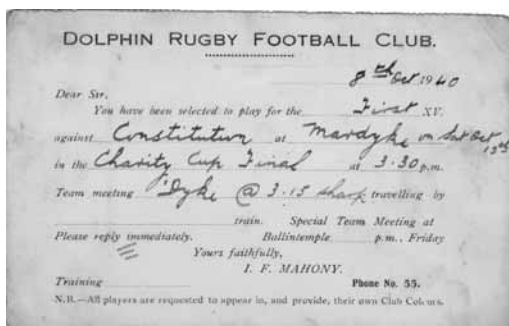 DOLPHIN RUGBY FOOTBALL CLUB.
8th Oct 1940
Dear Sir,
You have been selected to play for the First XV.
against Constitution at Mardyke on Sat Oct 12th
in the Charity Cup Final at 3.30 p.m.
Team meeting 'Dyke @ 3.15 sharp travelling by
train. Special Team Meeting at
Please reply immediately. Ballintemple p.m., Friday
Yours faithfully,
I. F. MAHONY.
Training Phone No. 55.
N.B.—All players are requested to appear in, and provide, their own Club Colours.